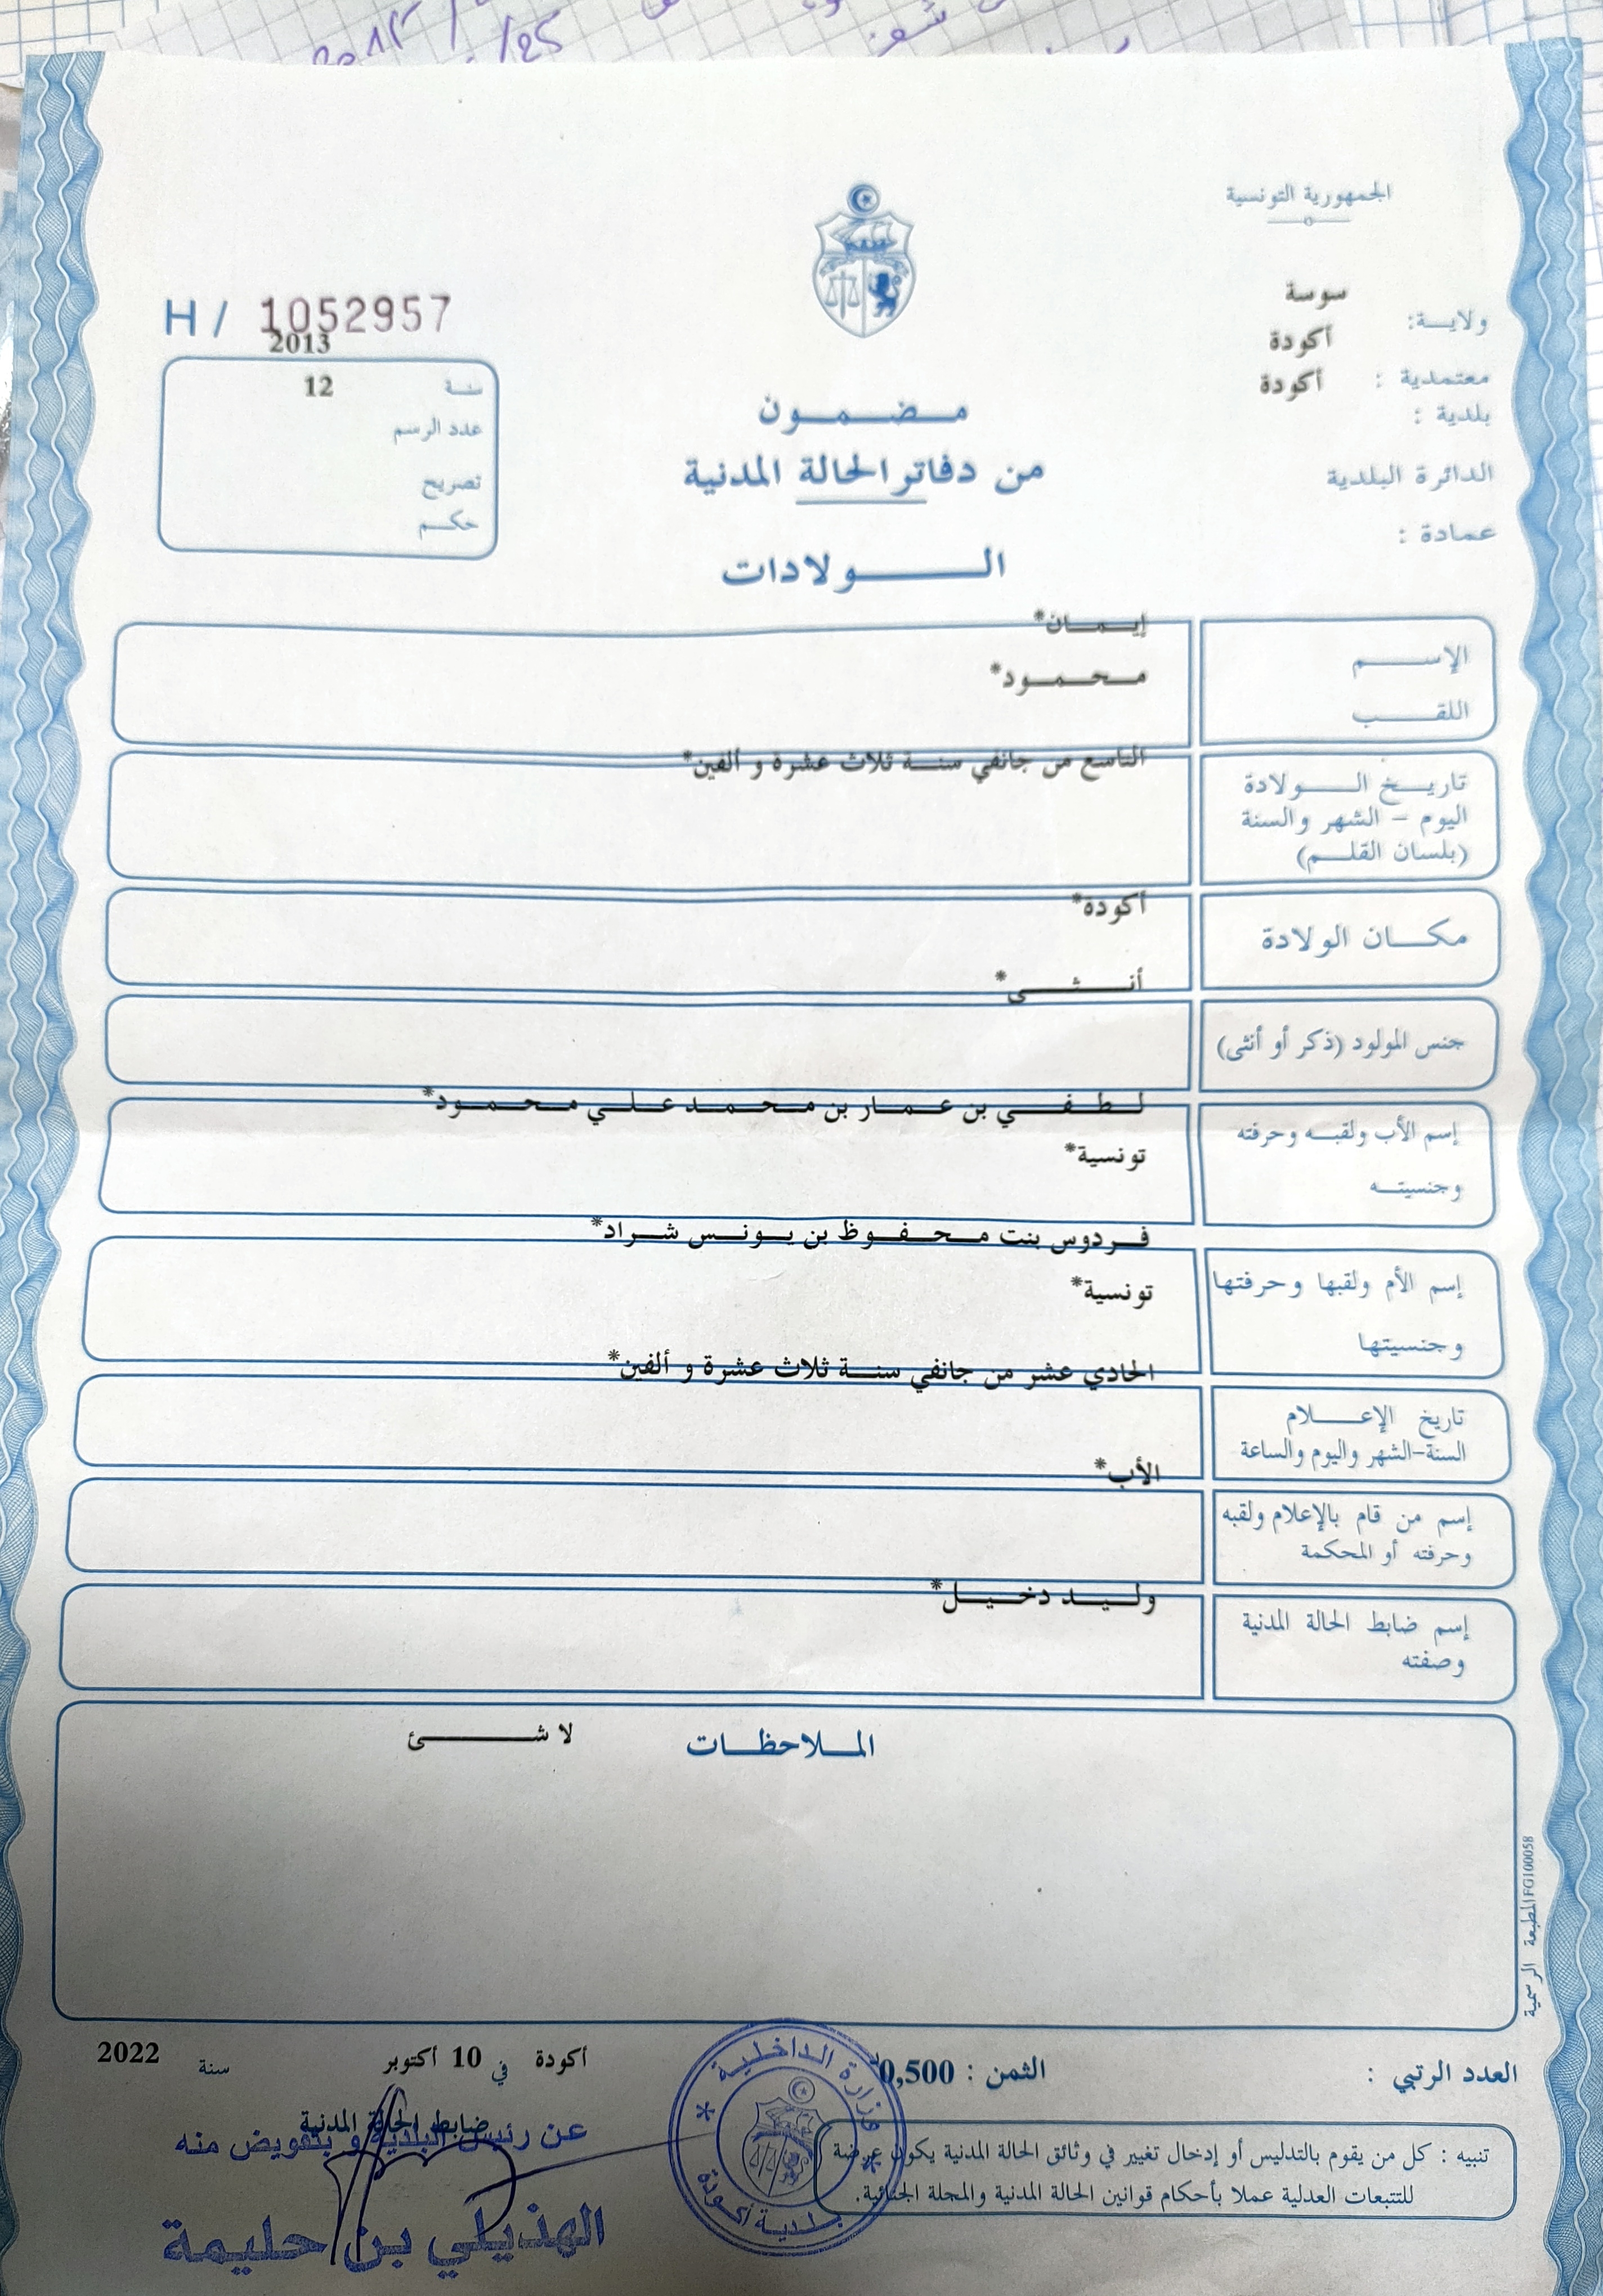 الجمهورية التونسية
ولاية: سوسة
معتمدية : أكودة
بلدية : أكودة
الدائرة البلدية
عمادة :
H / 1052957
2013
سنة 12
عدد الرسم
تصريح
حكم
مضمون
من دفاتر الحالة المدنية
الولادات
الإسم إيمان*
اللقب محمود*
تاريخ الولادة التاسع من جانفي سنة ثلاث عشرة و ألفين*
اليوم - الشهر والسنة
(بلسان القلم)
مكان الولادة أكودة*
جنس المولود (ذكر أو أنثى) أنثى*
إسم الأب ولقبه وحرفته لطفي بن عمار بن محمد علي محمود*
وجنسيته تونسية*
إسم الأم ولقبها وحرفتها فردوس بنت محفوظ بن يونس شراد*
وجنسيتها تونسية*
تاريخ الإعلام الحادي عشر من جانفي سنة ثلاث عشرة و ألفين*
السنة-الشهر واليوم والساعة
إسم من قام بالإعلام ولقبه الأب*
وحرفته أو المحكمة
إسم ضابط الحالة المدنية وليد دخيل*
وصفته
الملاحظات لا شئ
المطبعة الرسمية FG100058
العدد الرتبي : الثمن : 0,500
أكودة في 10 أكتوبر سنة 2022
ضابط الحالة المدنية
عن رئيس البلدية و بتفويض منه
الهذيلي بن حليمة
وزارة الداخلية
بلدية أكودة
تنبيه : كل من يقوم بالتدليس أو إدخال تغيير في وثائق الحالة المدنية يكون عرضة
للتتبعات العدلية عملا بأحكام قوانين الحالة المدنية والمجلة الجنائية.